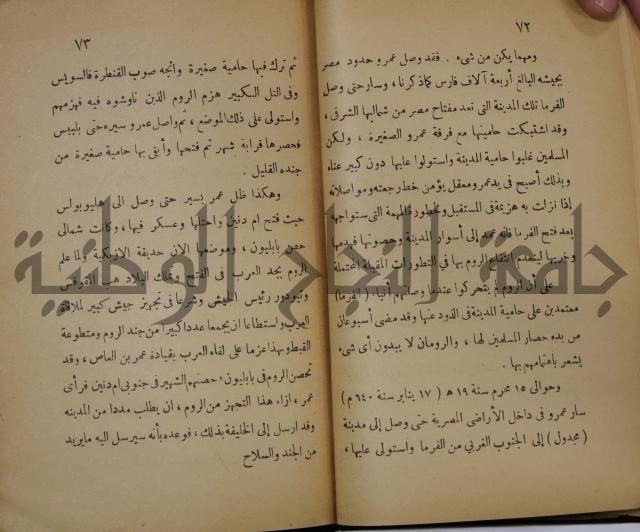 ٧٢
ومهما يكن من شىء . فقد وصل عمرو حدود مصر
بجيشه البالغ أربعة آلاف فارس كما ذكرنا ، وسار حتى وصل
الفرما تلك المدينة التى تعد مفتاح مصر من شمالها الشرقى ،
وقد اشتبكت حاميتها مع فرقة عمرو الصغيرة ، ولكن
المسلمين غلبوا حامية المدينة واستولوا عليها دون كبير عناء
وبذلك أصبح فى يد عمرو معقل يؤمن خط رجعته ومواصلاته
إذا نزلت به هزيمة فى المستقبل ولخطورة المهمة التى ستواجهه
بعد فتح الفرما فانه عمد إلى أسوار المدينة وحصونها فهدمها
وخربها لينعدم انتفاع الروم بها فى التطورات المقبلة المحتملة
على أن الروم لم يتحركوا عندما وصلتهم أنباء ( الفرما )
معتمدين على حامية المدينة فى الذود عنها وقد مضى أسبوعان
من بدء حصار المسلمين لها ، والرومان لا يبدون أى شىء
يشعر باهتمامهم بها .
وحوالى ١٥ محرم سنة ١٩ هـ ( ١٧ يناير سنة ٦٤٠ م )
سار عمرو فى داخل الأراضى المصرية حتى وصل إلى مدينة
( مجدول ) إلى الجنوب الغربي من الفرما واستولى عليها ،
٧٣
ثم ترك فيها حامية صغيرة واتجه صوب القنطرة فالسويس
وفى التل الكبير هزم الروم الذين ناوشوه فيه فهزمهم
واستولى على ذلك الموضع ، ثم واصل عمرو سيره حتى بلبيس
فحصرها قرابة شهر ثم فتحها وأبقى بها حامية صغيرة من
جنده القليل .
وهكذا ظل عمر يسير حتى وصل الى هليوبواس
حيث فتح ام دنين واحتلها وعسكر فيها ، وكانت شمالى
حصن بابليون ، وموضعها الان حديقة الازبكية ولما علم
الروم بجد العرب فى الفتح وتملك البلاد هب المقوقس
وتيودور رئيس الجيش وشرعا فى تجهيز جيش كبير لملاقاة
العرب واستطاعا ان يجمعا عددا كبيرا من جند الروم ومتطوعة
القبط وبهذا عزما على لقاء العرب بقيادة عمر بن العاص ، وقد
تحصن الروم فى بابليون وحصنهم الشهير فى جنوبى ام دنين فرأى
عمر ، ازاء هذا التجهز من الروم ، ان يطلب مددا من المدينه
وقد ارسل إلى الخليفة بذلك ، فوعده بأنه سيرسل اليه ما يريد
من الجند والسلاح
جامعة النجاح الوطنية